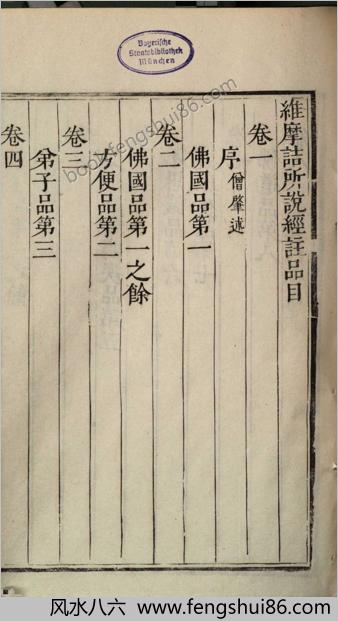 Bayerische
Staatsbibliothek
München
維摩詰所說經註品目
卷一
序僧肇述
佛國品第一
卷二
佛國品第一之餘
方便品第二
卷三
弟子品第三
卷四
book.fengshui86.com
风水八六 www.fengshui86.com